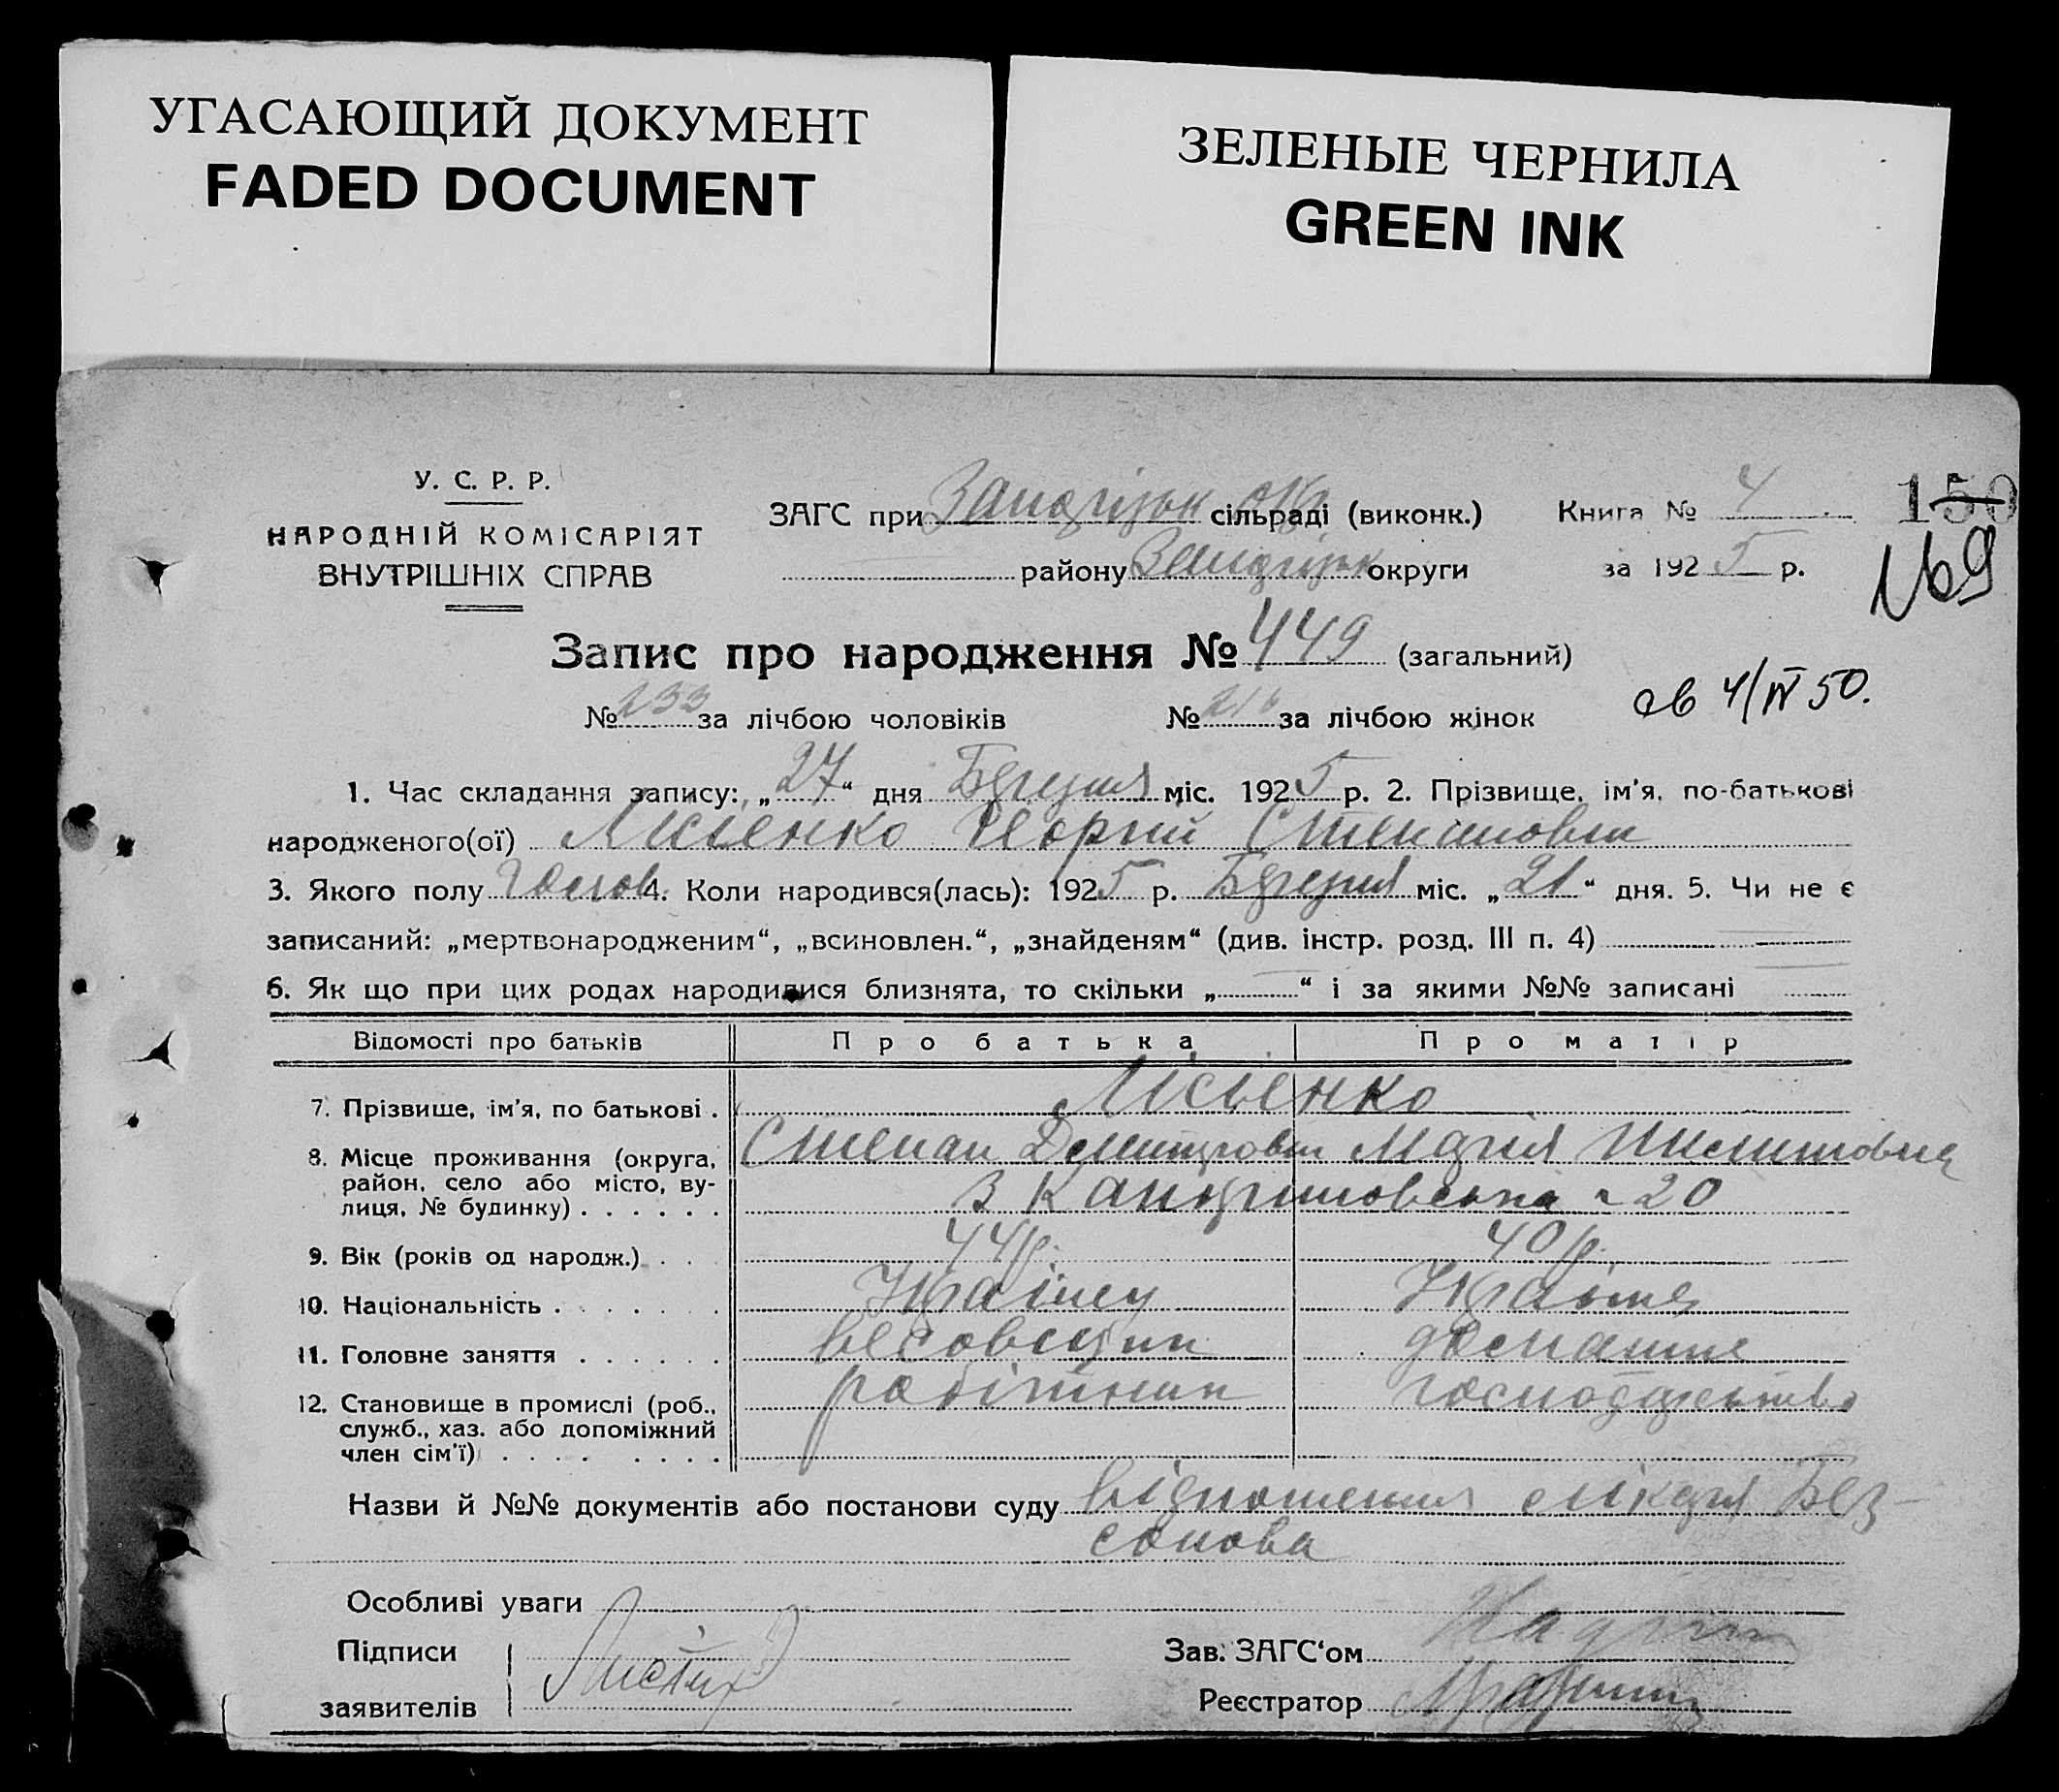 УГАСАЮЩИЙ ДОКУМЕНТ
FADED DOCUMENT
ЗЕЛЕНЫЕ ЧЕРНИЛА
GREEN INK
У. С. Р. Р.
НАРОДНІЙ КОМІСАРІЯТ
ВНУТРІШНІХ СПРАВ
ЗАГС при Запоріжськ сільраді (виконк.)
району Запоріжськ округи
Книга № 4
за 1925 р.
150
169
Запис про народження № 449 (загальний)
№ 233 за лічбою чоловіків № 216 за лічбою жінок
4/IV 50.
1. Час складання запису: „27“ дня Березня міс. 1925 р. 2. Прізвище, ім'я, по-батькові
народженого(ої) Лісіенко Георгій Степанович
3. Якого полу 4. Коли народився(лась): 1925 р. Березня міс. „21“ дня. 5. Чи не є
записаний: „мертвонародженим“, „всиновлен.“, „знайденям“ (див. інстр. розд. III п. 4)
6. Як що при цих родах народилися близнята, то скільки „ “ і за якими №№ записані
Відомості про батьків Про батька Про матір
7. Прізвище, ім'я, по батькові . Лісіенко
8. Місце проживання (округа,
район, село або місто, ву-
лиця, № будинку) . . . . . .
Степан Дмитрович Марія
20
9. Вік (років од народж.) . . . 44 р. 40 р.
10. Національність . . . . . . . Українец Українка
11. Головне заняття . . . . . . весовщик домашне
12. Становище в промислі (роб.,
служб., хаз. або допоміжний
член сім'ї) . . . . . . . .
робітник господарство
Назви й №№ документів або постанови суду відношення лікаря Без-
сонова
Особливі уваги
Підписи
заявителів
Зав. ЗАГС'ом
Реєстратор